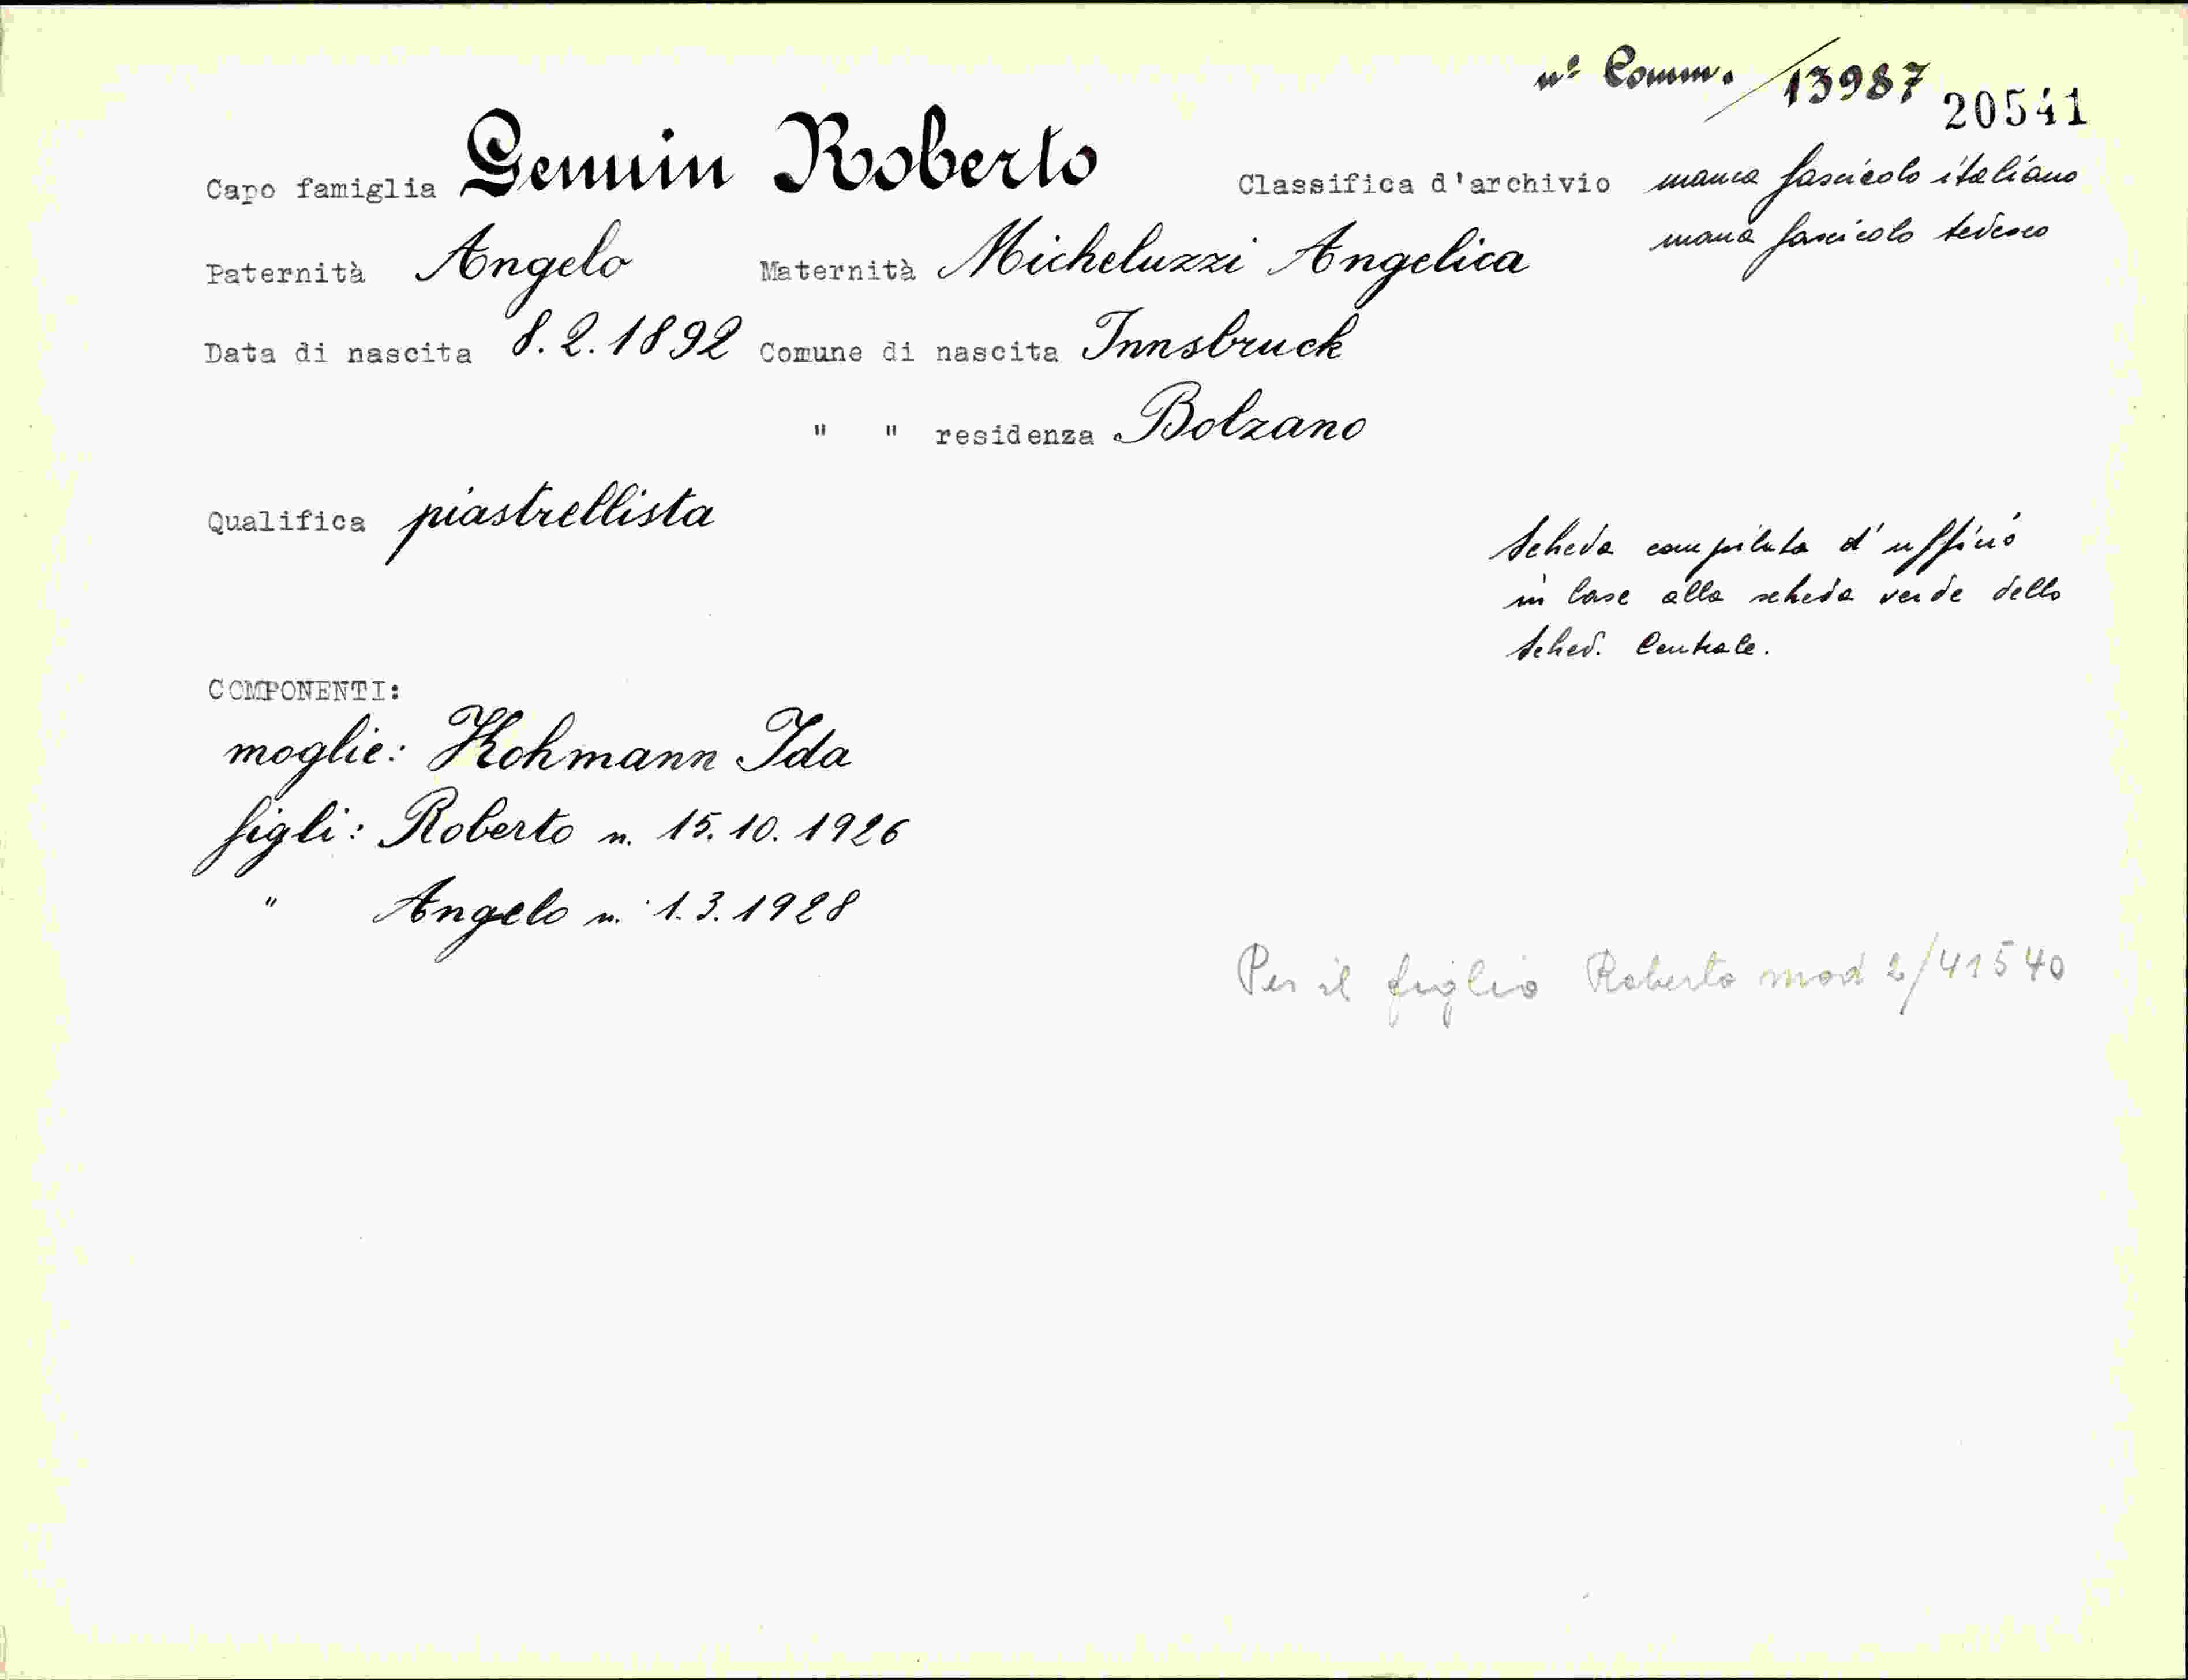 nº Comm. /13987 20541
Capo famiglia Genuin Roberto Classifica d'archivio manca fascicolo italiano
manca fascicolo tedesco
Paternità Angelo Maternità Micheluzzi Angelica
Data di nascita 8.2.1892 Comune di nascita Innsbruck
" " residenza Bolzano
Qualifica piastrellista
Scheda compilata d'ufficio
in base alla scheda verde dello
Sched. Centrale.
COMPONENTI:
moglie: Hohmann Ida
figli: Roberto n. 15.10.1926
" Angelo n. 1.3.1928
Per il figlio Roberto mod 2/41540